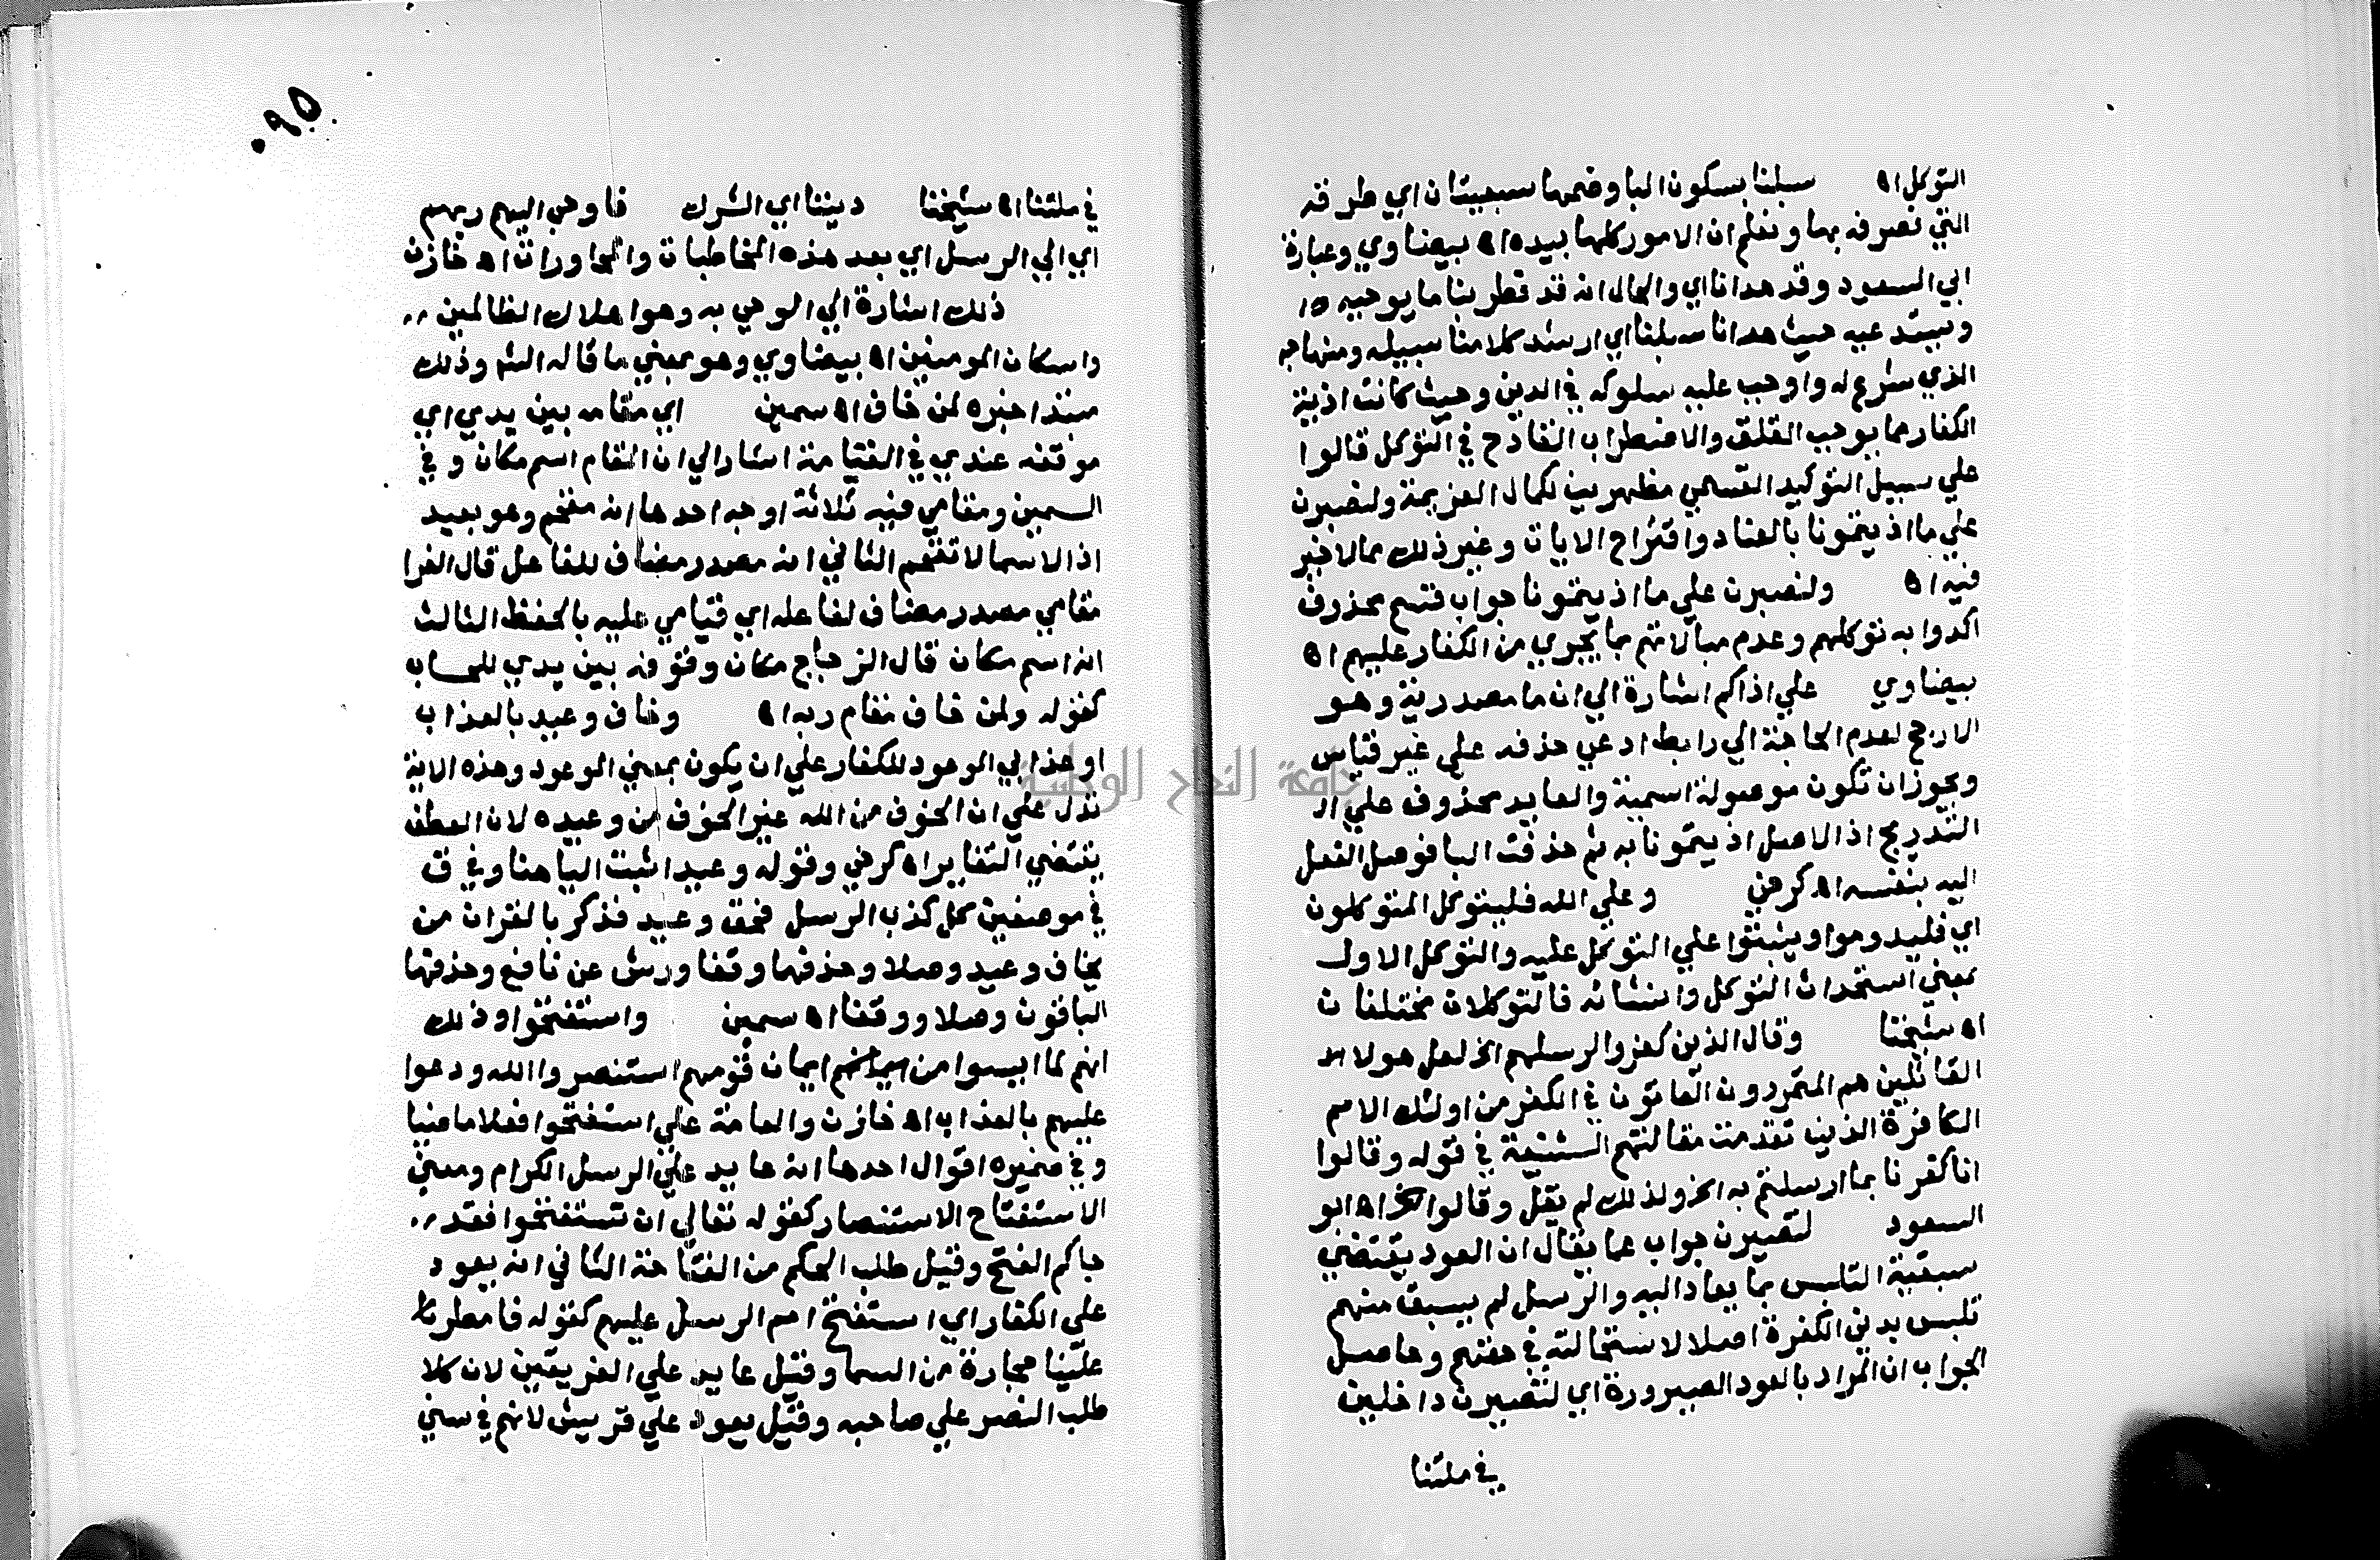 التوكل اه سبلنا بسكون البا وضمها سبعيتان اي طرقه
التي نعرفه بها ونعلم ان الامور كلها بيده اه بيضاوي وعبارة
ابي السعود وقد هدانا اي والحال انه قد فعل بنا ما يوجبه
ويستدعيه حيث هدانا سبلنا اي ارشد كلا منا سبيله ومنهاجه
الذي شرع له واوجب عليه سلوكه في الدين وحيث كانت اذية
الكفار مما يوجب القلق والاضطراب القادح في التوكل قالوا
علي سبيل التوكيد القسمي مظهرين لكمال العزيمة ولنصبرن
علي ما اذيتمونا بالعناد واقتراح الايات وغير ذلك مما لا خير
فيه اه ولنصبرن علي ما اذيتمونا جواب قسم محذوف
اكدوا به توكلهم وعدم مبالاتهم بما يجري من الكفار عليهم اه
بيضاوي علي اذاكم اشارة الي ان ما مصدرية وهو
الارجح لعدم الحاجة الي رابط ادعي حذفه علي غير قياس
ويجوز ان تكون موصولة اسمية والعايد محذوف علي ال
التدريج اذ الاصل اذيتمونا به ثم حذفت البا فوصل الفعل
اليه بنفسه اه كرخي وعلي الله فليتوكل المتوكلون
اي فليدوموا ويثبتوا علي التوكل عليه والتوكل الاول
بمعني استحداث التوكل وانشائه فالتوكلان مختلفان
اه شيخنا وقال الذين كفروا لرسلهم الخ لعل هولاء
القائلين هم المتمردون العاتون في الكفر من اولئك الامم
الكافرة الذين تقدمت مقالتهم الشنيعة في قوله وقالوا
انا كفرنا بما ارسلتم به الخ ولذلك لم يقل وقالوا الخ اه ابو
السعود لتصيرن جواب عما يقال ان العود يقتضي
سبقية التلبس بما يعاد اليه والرسل لم يسبق منهم
تلبس بدين الكفرة اصلا لاستحالته في حقهم وحاصل
الجواب ان المراد بالعود الصيرورة اي لتصيرن داخلين
في ملتنا
٠٩٥
في ملتنا اه شيخنا ديننا اي الشرك فاوحي اليهم ربهم
اي الي الرسل اي بعد هذه المخاطبات والمحاورات اه خازن
ذلك اشارة الي الموحي به وهو اهلاك الظالمين
واسكان المومنين اه بيضاوي وهو بمعني ما قاله الشم وذلك
مبتدا خبره لمن خاف اه سمين اي مقامه بين يدي اي
موقفه عندي في القيامة اشار الي ان المقام اسم مكان وفي
السمين ومقامي فيه ثلاثة اوجه احدها انه مقحم وهو بعيد
اذ الاسما لا تقحم الثاني انه مصدر مضاف للفاعل قال الفرا
مقامي مصدر مضاف لفاعله اي قيامي عليه بالحفظ الثالث
انه اسم مكان قال الزجاج مكان وقوفه بين يدي للحساب
كقوله ولمن خاف مقام ربه اه وخاف وعيد بالعذاب
او عذابي الموعود للكفار علي ان يكون بمعني الوعود وهذه الاية
تدل علي ان الخوف من الله غير الخوف من وعيده لان العطف
يقتضي التغاير اه كرخي وقوله وعيد اثبت اليا هنا وفي ق
في موضعين كل كذب الرسل فحق وعيد فذكر بالقران من
يخاف وعيد وصلا وحذفها وقفا ورش عن نافع وحذفها
الباقون وصلا ووقفا اه سمين واستفتحوا وذلك
انهم لما ايسوا من ايمان قومهم استنصروا الله ودعوا
عليهم بالعذاب اه خازن والعامة علي استفتحوا فعلا ماضيا
وفي ضميره اقوال احدها انه عايد علي الرسل الكرام ومعني
الاستفتاح الاستنصار كقوله تعالي ان تستفتحوا فقد
جاكم الفتح وقيل طلب الحكم من الفتاحة الثاني انه يعود
علي الكفار اي استفتح امم الرسل عليهم كقوله فامطر
علينا حجارة من السما وقيل عايد علي الفريقين لان كلا
طلب النصر علي صاحبه وقيل يعود علي قريش لانهم في سني
جامعة النجاح الوطنية